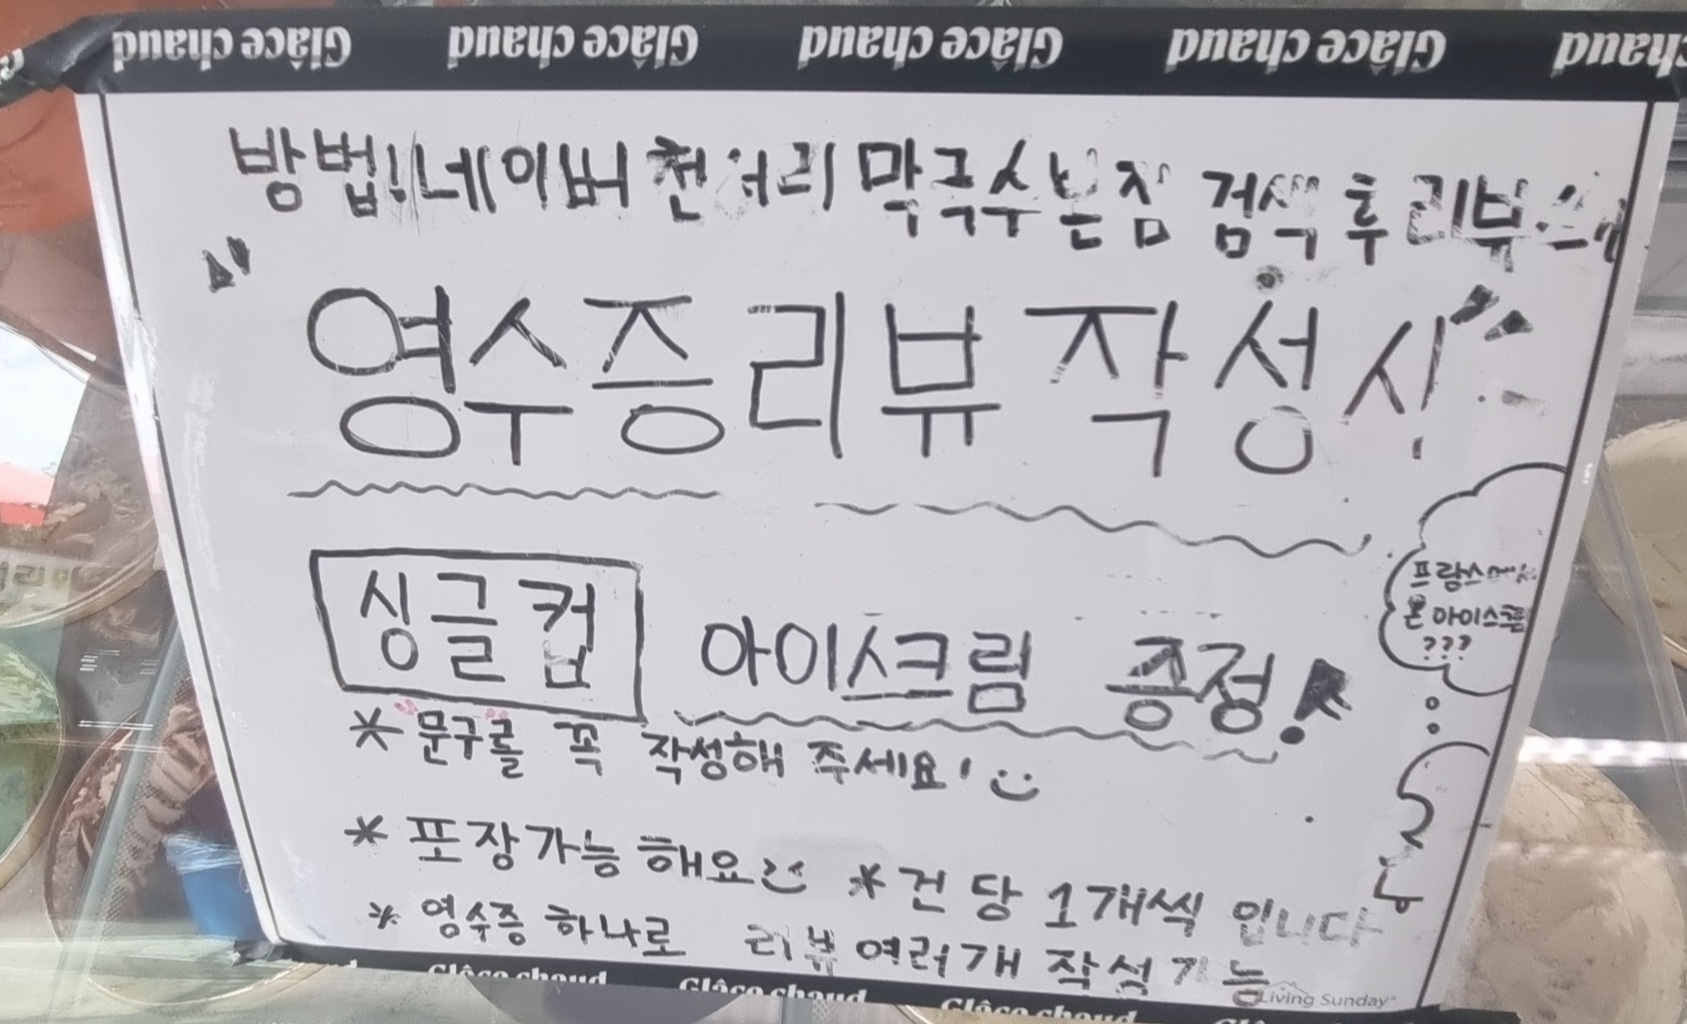 Glâce chaud Glâce chaud Glâce chaud Glâce chaud chaud
방법! 네이버 천서리 막국수 본점 검색 후 리뷰
"영수증리뷰 작성시"
싱글컵 아이스크림 증정!
프랑스에서
온 아이스크림
???
* "문구"를 꼭 작성해 주세요!
* 포장가능해요 * 건당 1개씩 입니다
* 영수증 하나로 리뷰 여러개 작성가능
Living Sunday
Glâce chaud Glâce chaud Glâce chaud